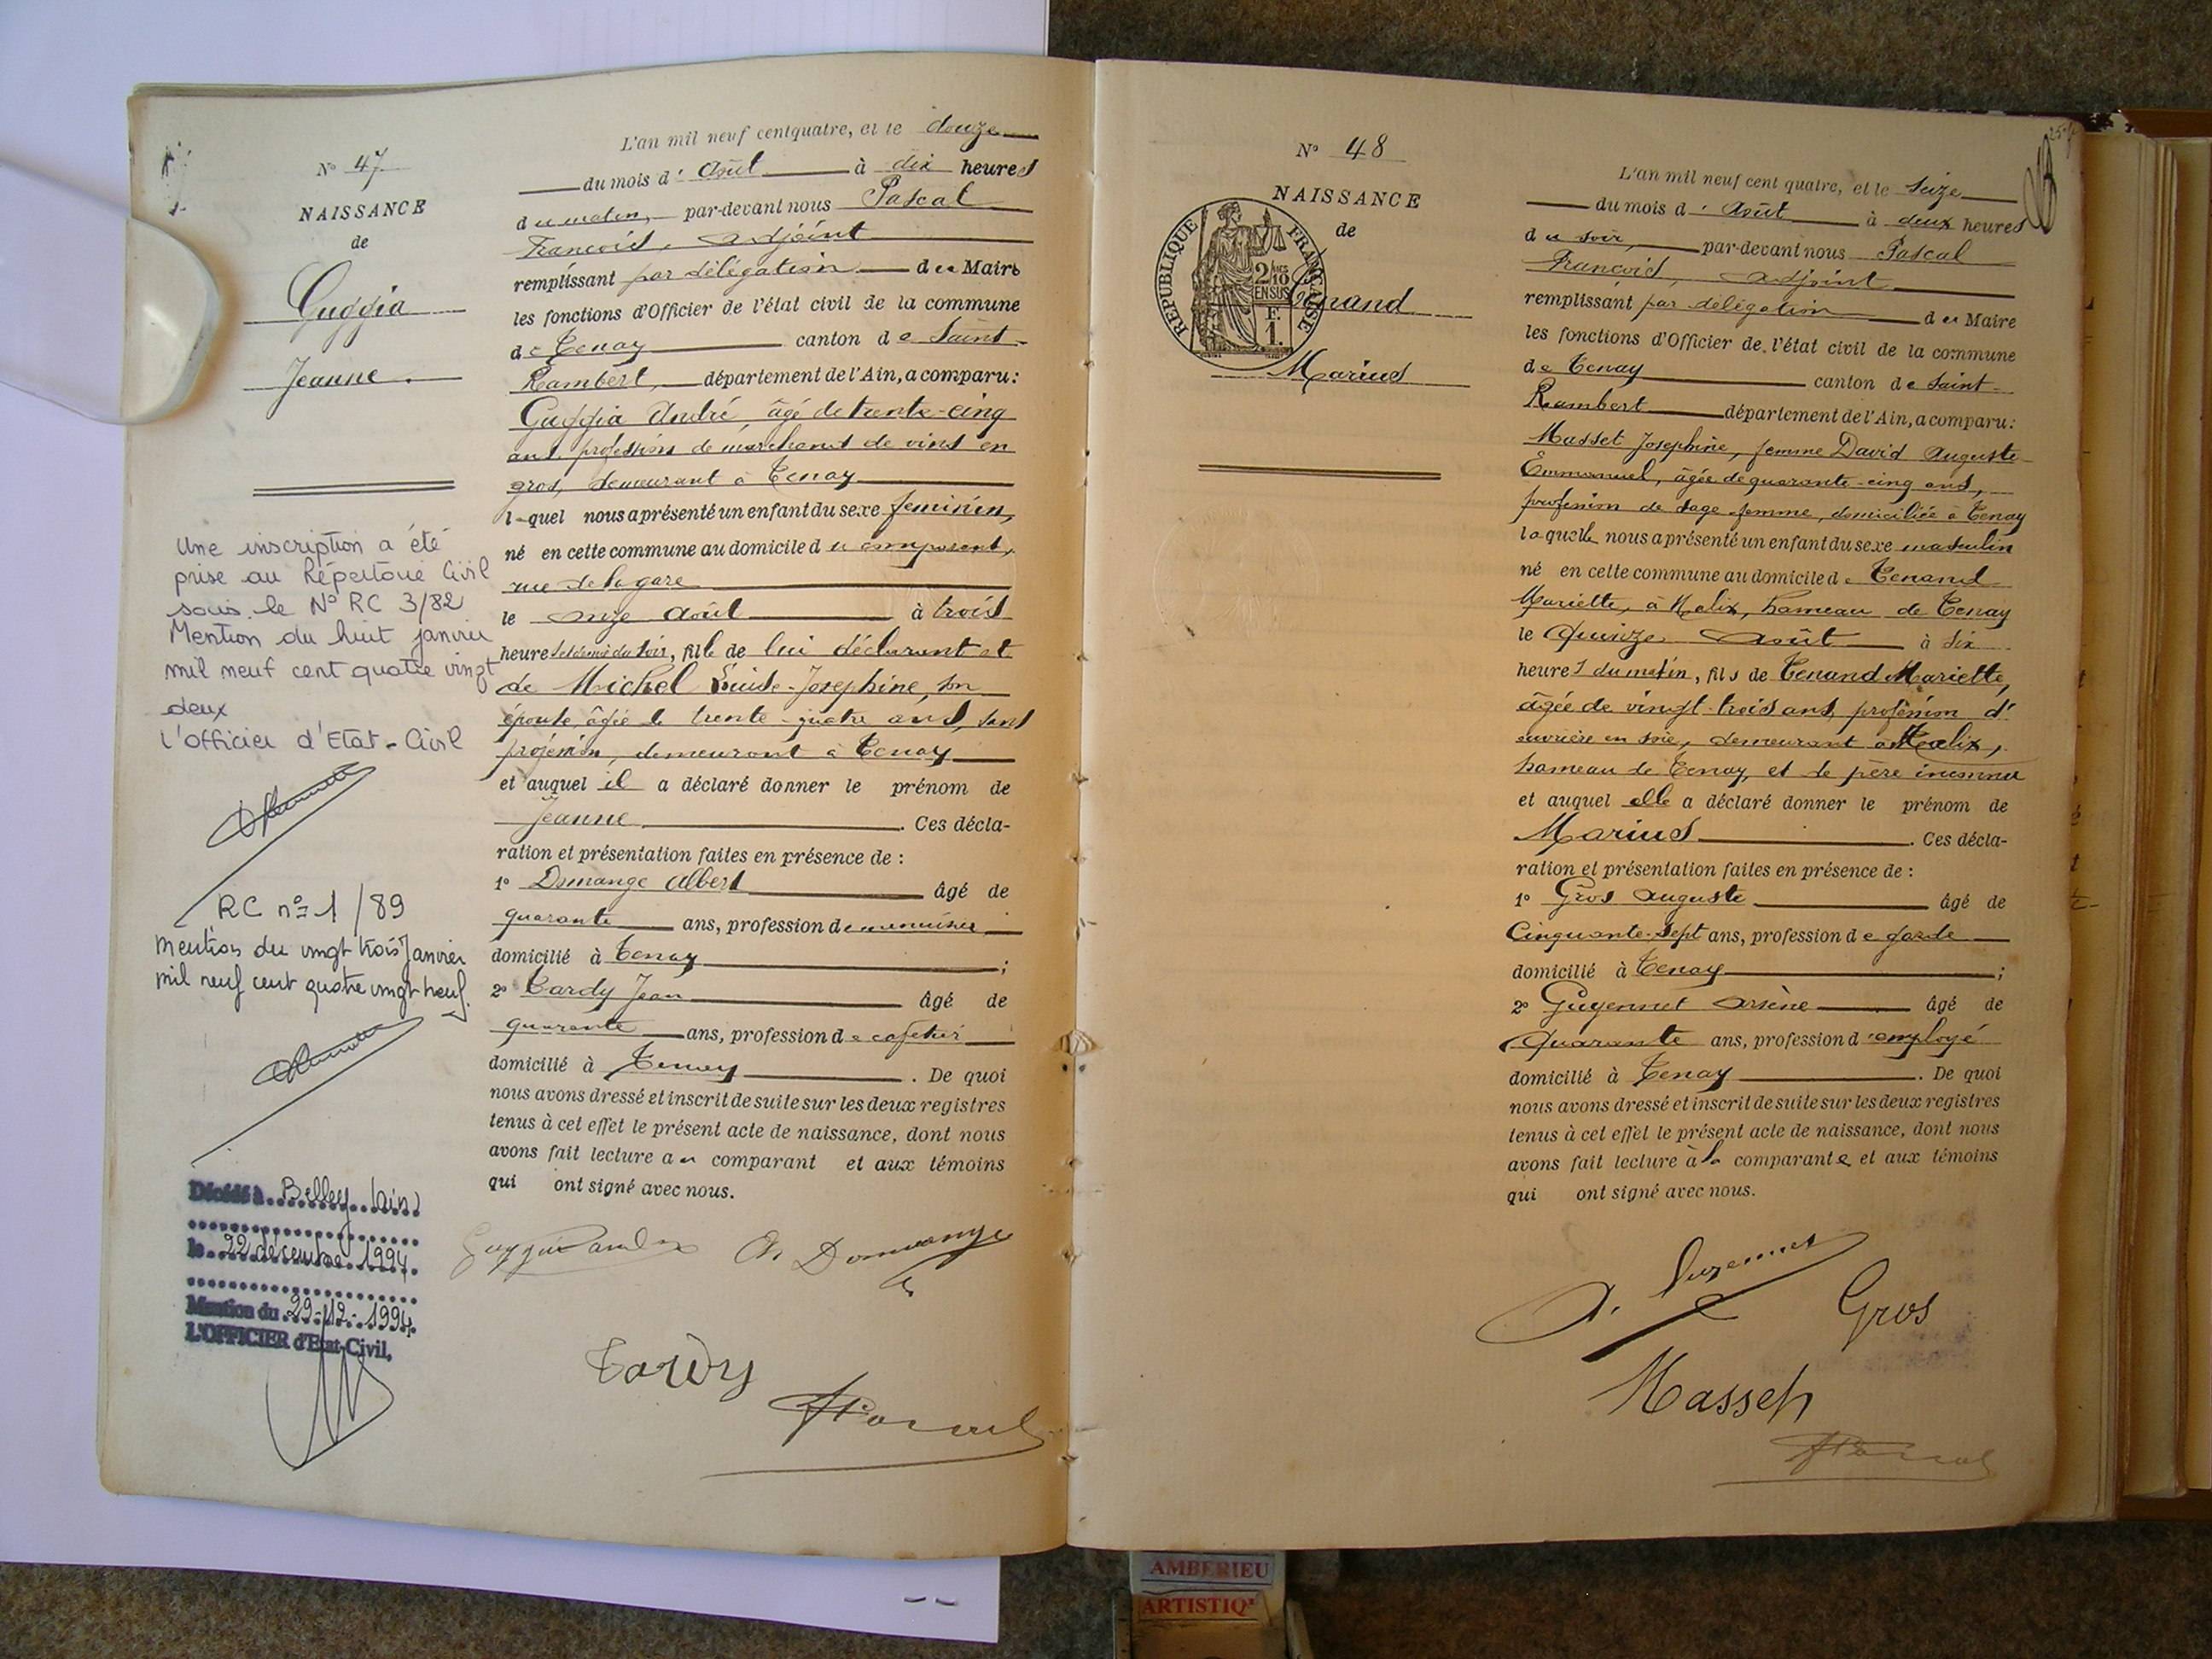 Nº 47
NAISSANCE
de
Guggia
Jeanne
Une inscription a été
prise au Répertoire Civil
sous le Nº RC 3/82
Mention du huit janvier
mil neuf cent quatre vingt
deux
l'Officier d'Etat-Civil
RC nº 1/89
Mention du vingt trois Janvier
mil neuf cent quatre vingt neuf.
Décédé à Belley (Ain)
le 22 décembre 1994
Mention du 29-12-1994
L'OFFICIER d'Etat-Civil,
L'an mil neuf cent quatre, et le douze
du mois d'Août à dix heures
du matin, par-devant nous Pascal
François, adjoint
remplissant par délégation du Maire
les fonctions d'Officier de l'état civil de la commune
de Tenay canton de Saint-
Rambert, département de l'Ain, a comparu:
Guggia André, âgé de trente-cinq
ans, profession de marchand de vins en
gros, demeurant à Tenay
lequel nous a présenté un enfant du sexe feminin,
né en cette commune au domicile du comparant,
rue de la gare
le onze Août à trois
heures et demie du soir, fille de lui déclarant et
de Michel Louise-Josephine, son
épouse, âgée de trente-quatre ans, sans
profession, demeurant à Tenay
et auquel il a déclaré donner le prénom de
Jeanne. Ces décla-
ration et présentation faites en présence de :
1º Domange Albert âgé de
quarante ans, profession de menuisier
domicilié à Tenay ;
2º Tardy Jean âgé de
quarante ans, profession de cafetier
domicilié à Tenay. De quoi
nous avons dressé et inscrit de suite sur les deux registres
tenus à cet effet le présent acte de naissance, dont nous
avons fait lecture au comparant et aux témoins
qui ont signé avec nous.
A. Domange
Tardy
Nº 48
NAISSANCE
de
Tenand
Marius
REPUBLIQUE FRANÇAISE
2/10
EN SUS
F.
1.
L'an mil neuf cent quatre, et le seize
du mois d'Août à deux heures
du soir, par-devant nous Pascal
François, adjoint
remplissant par délégation du Maire
les fonctions d'Officier de l'état civil de la commune
de Tenay canton de Saint-
Rambert département de l'Ain, a comparu:
Masset Josephine, femme David Auguste
Emmanuel, âgée de quarante-cinq ans,
profession de sage-femme, domiciliée à Tenay
laquelle nous a présenté un enfant du sexe masculin
né en cette commune au domicile de Tenand
Mariette, à Malix, hameau de Tenay
le Quinze Août à six
heures du matin, fils de Tenand Mariette,
âgée de vingt-trois ans, profession d'
ouvrière en soie, demeurant à Malix,
hameau de Tenay, et de père inconnu
et auquel elle a déclaré donner le prénom de
Marius. Ces décla-
ration et présentation faites en présence de :
1º Gros Auguste âgé de
Cinquante-sept ans, profession de garde
domicilié à Tenay ;
2º Guyennet Arsène âgé de
Quarante ans, profession d'employé
domicilié à Tenay. De quoi
nous avons dressé et inscrit de suite sur les deux registres
tenus à cet effet le présent acte de naissance, dont nous
avons fait lecture à la comparante et aux témoins
qui ont signé avec nous.
Gros
AMBERIEU
ARTISTIQ